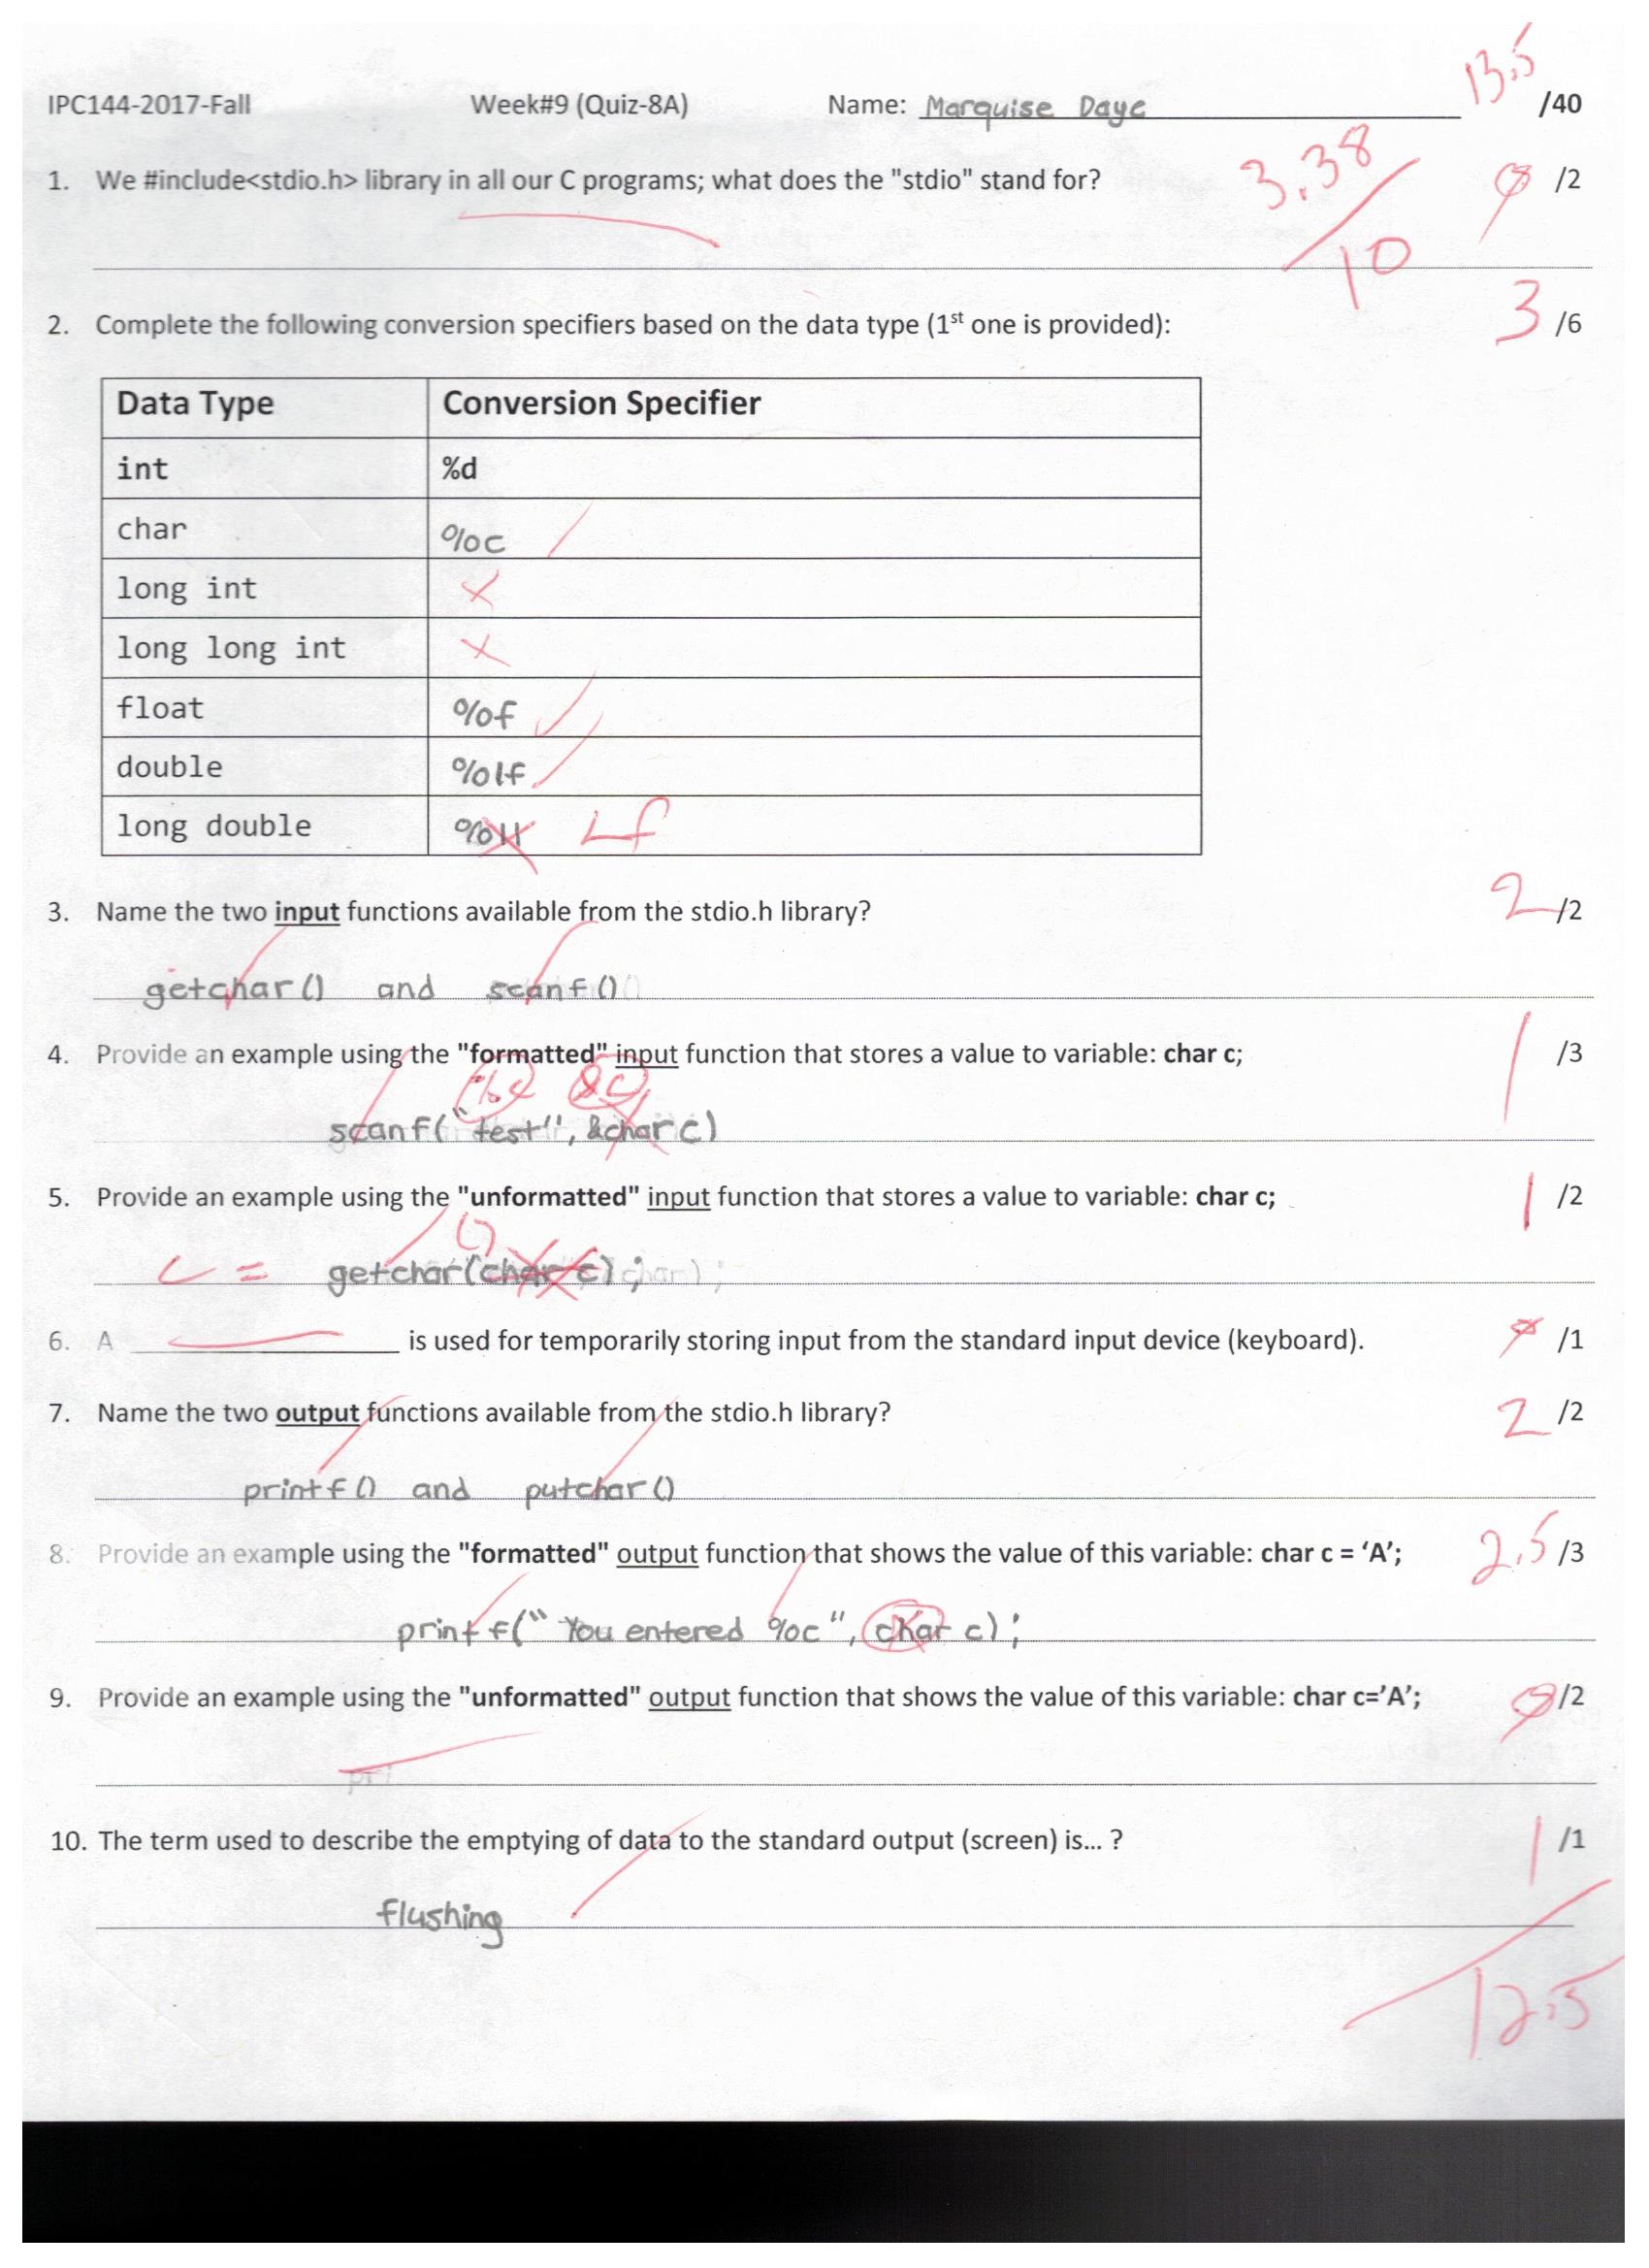 13.5
IPC144-2017-Fall Week#9 (Quiz-8A) Name: Marquise Daye /40
3.38/10
1. We #include<stdio.h> library in all our C programs; what does the "stdio" stand for? 0 /2
2. Complete the following conversion specifiers based on the data type (1st one is provided): 3 /6
Data Type Conversion Specifier
int %d
char %c
long int
long long int
float %f
double %lf
long double %ll Lf
3. Name the two input functions available from the stdio.h library? 2 /2
getchar() and scanf()
4. Provide an example using the "formatted" input function that stores a value to variable: char c; 1 /3
%c &c
scanf("test", &char c)
5. Provide an example using the "unformatted" input function that stores a value to variable: char c; 1 /2
()
c = getchar(char c);
6. A ________ is used for temporarily storing input from the standard input device (keyboard). 0 /1
7. Name the two output functions available from the stdio.h library? 2 /2
printf() and putchar()
8. Provide an example using the "formatted" output function that shows the value of this variable: char c = ‘A’; 2.5 /3
printf("You entered %c", char c);
9. Provide an example using the "unformatted" output function that shows the value of this variable: char c=’A’; 0 /2
pri
10. The term used to describe the emptying of data to the standard output (screen) is... ? 1 /1
flushing
12.5